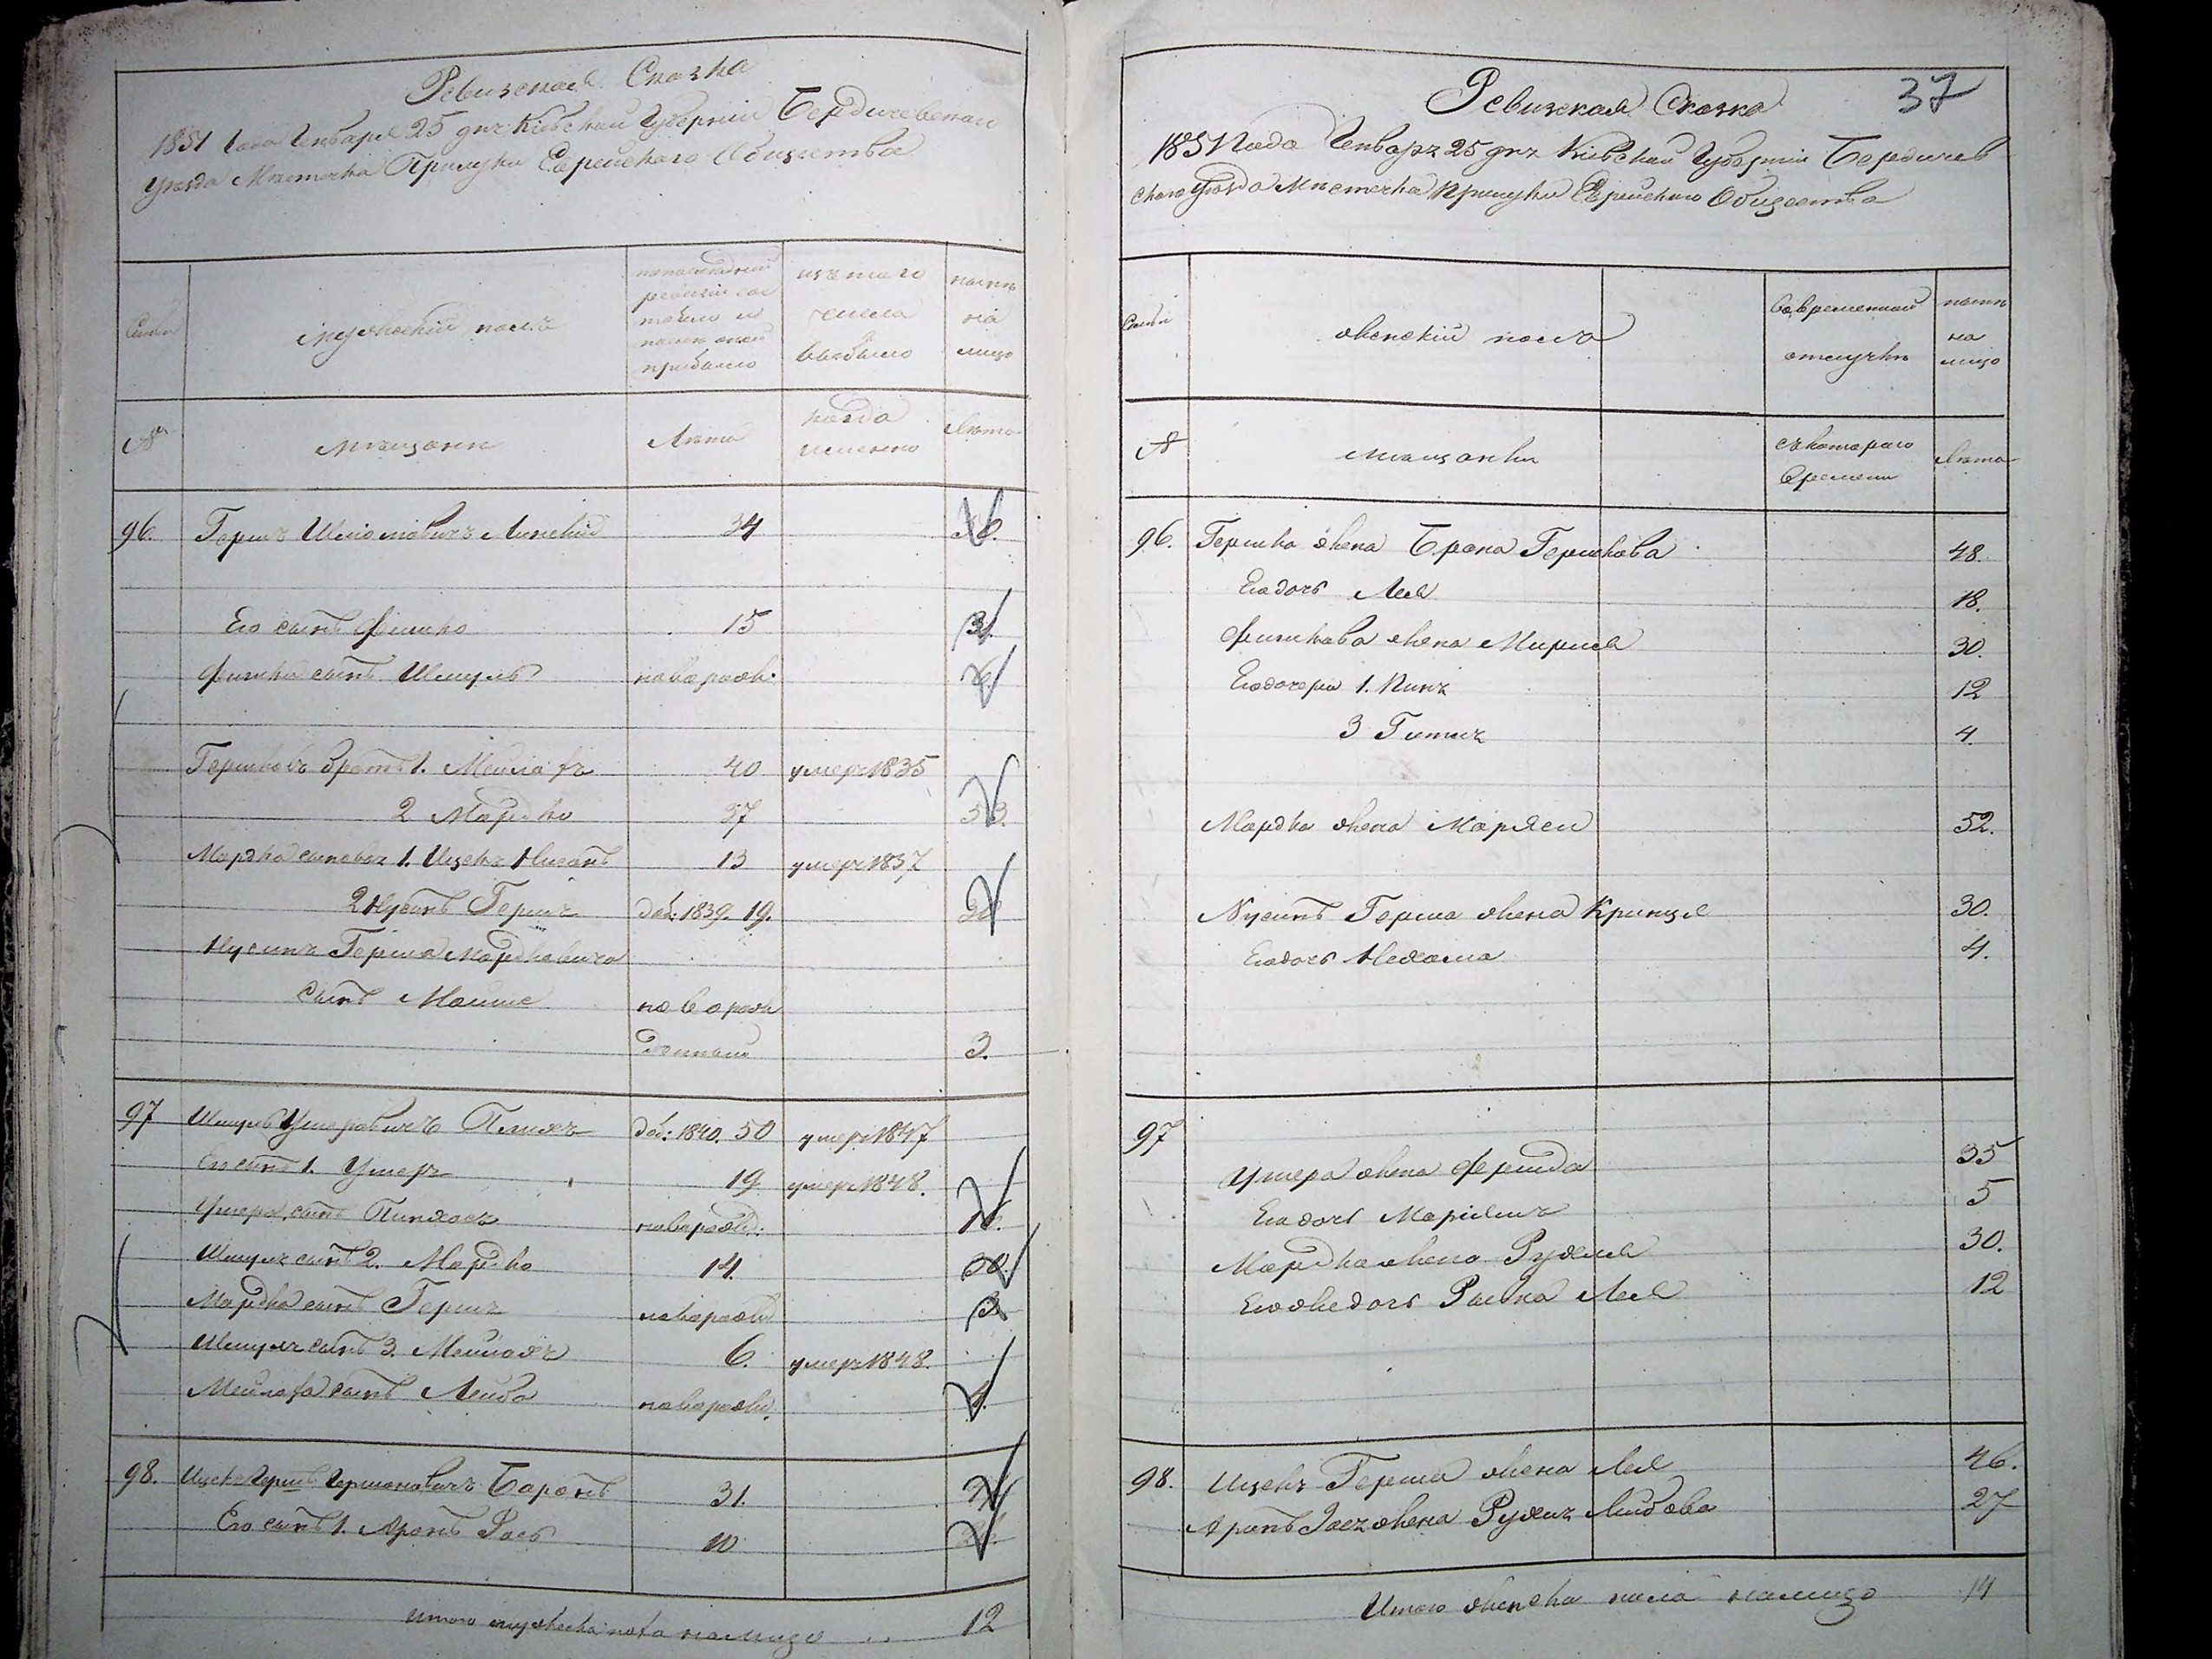 Ревизская Сказка
1851 Года Генваря 25 дня Кіевской Губерніи Бердичевскаго
уезда Местечка Прилуки Еврейскаго Общества
Семьи
мужескій полъ
по последней
ревизіи сос
тояло и
после оной
прибыло
изъ того
числа
выбыло
ныне
на
лицо
№
мещане
Лета
когда
именно
Лета
96. Гершъ Шліомовичъ Липскій 34
Его сынъ Фишко 15 31.
Фишки сынъ Шмуль новорож.
Гершковъ братъ 1. Мейлахъ 40 умеръ 1835
2 Мордко 37 53.
Мордка сыновья 1. Ицекъ Нисонъ 13 умеръ 1837
2 Нусинъ Гершъ доб. 1839. 19.
Нусинъ Герша Мордковича
сынъ Мойше новорож
денный 3.
97 Шмуль Ушеровичъ доб: 1840. 50 умеръ 1847
Его сынъ 1. Ушеръ 19 умеръ 1848.
Ушера сынъ Пинхасъ новорожд.
Шмуля сынъ 2. Мордко 14. 30.
Мордка сынъ Гершъ новорожд 3.
Шмуля сынъ 3. Мейлахъ 6. умеръ 1848.
Мейлаха сынъ Лейба новорожд.
98. Ицекъ Гершъ Баронъ 31.
Его сынъ 1. Аронъ 10
Итого мужеска пола налицо 12
37
Ревизская Сказка
1851 Года Генваря 25 дня Кіевской Губерніи Бердичев
скаго Уезда Местечка Прилуки Еврейскаго Общества
Семьи
женскій полъ
во временной
отлучке
ныне
на
лицо
№
мещанки
съ котораго
времени
Лета
96. Гершка жена Брана Гершкова 48.
Его дочь Лея 18.
Фишкова жена Мириля 30.
Его дочери 1. 12
3 4.
Мордка жена Марьяси 52.
Нусинъ Герша жена Кринця 30.
Его дочь Нехама 4.
97
Ушера жена Фейга 35
Его дочь 5
Мордка жена Рухля 30.
Его же дочь Лея 12
98. Ицекъ Герша жена Лея 46.
Аронъ жена 27
Итого женска пола налицо 14